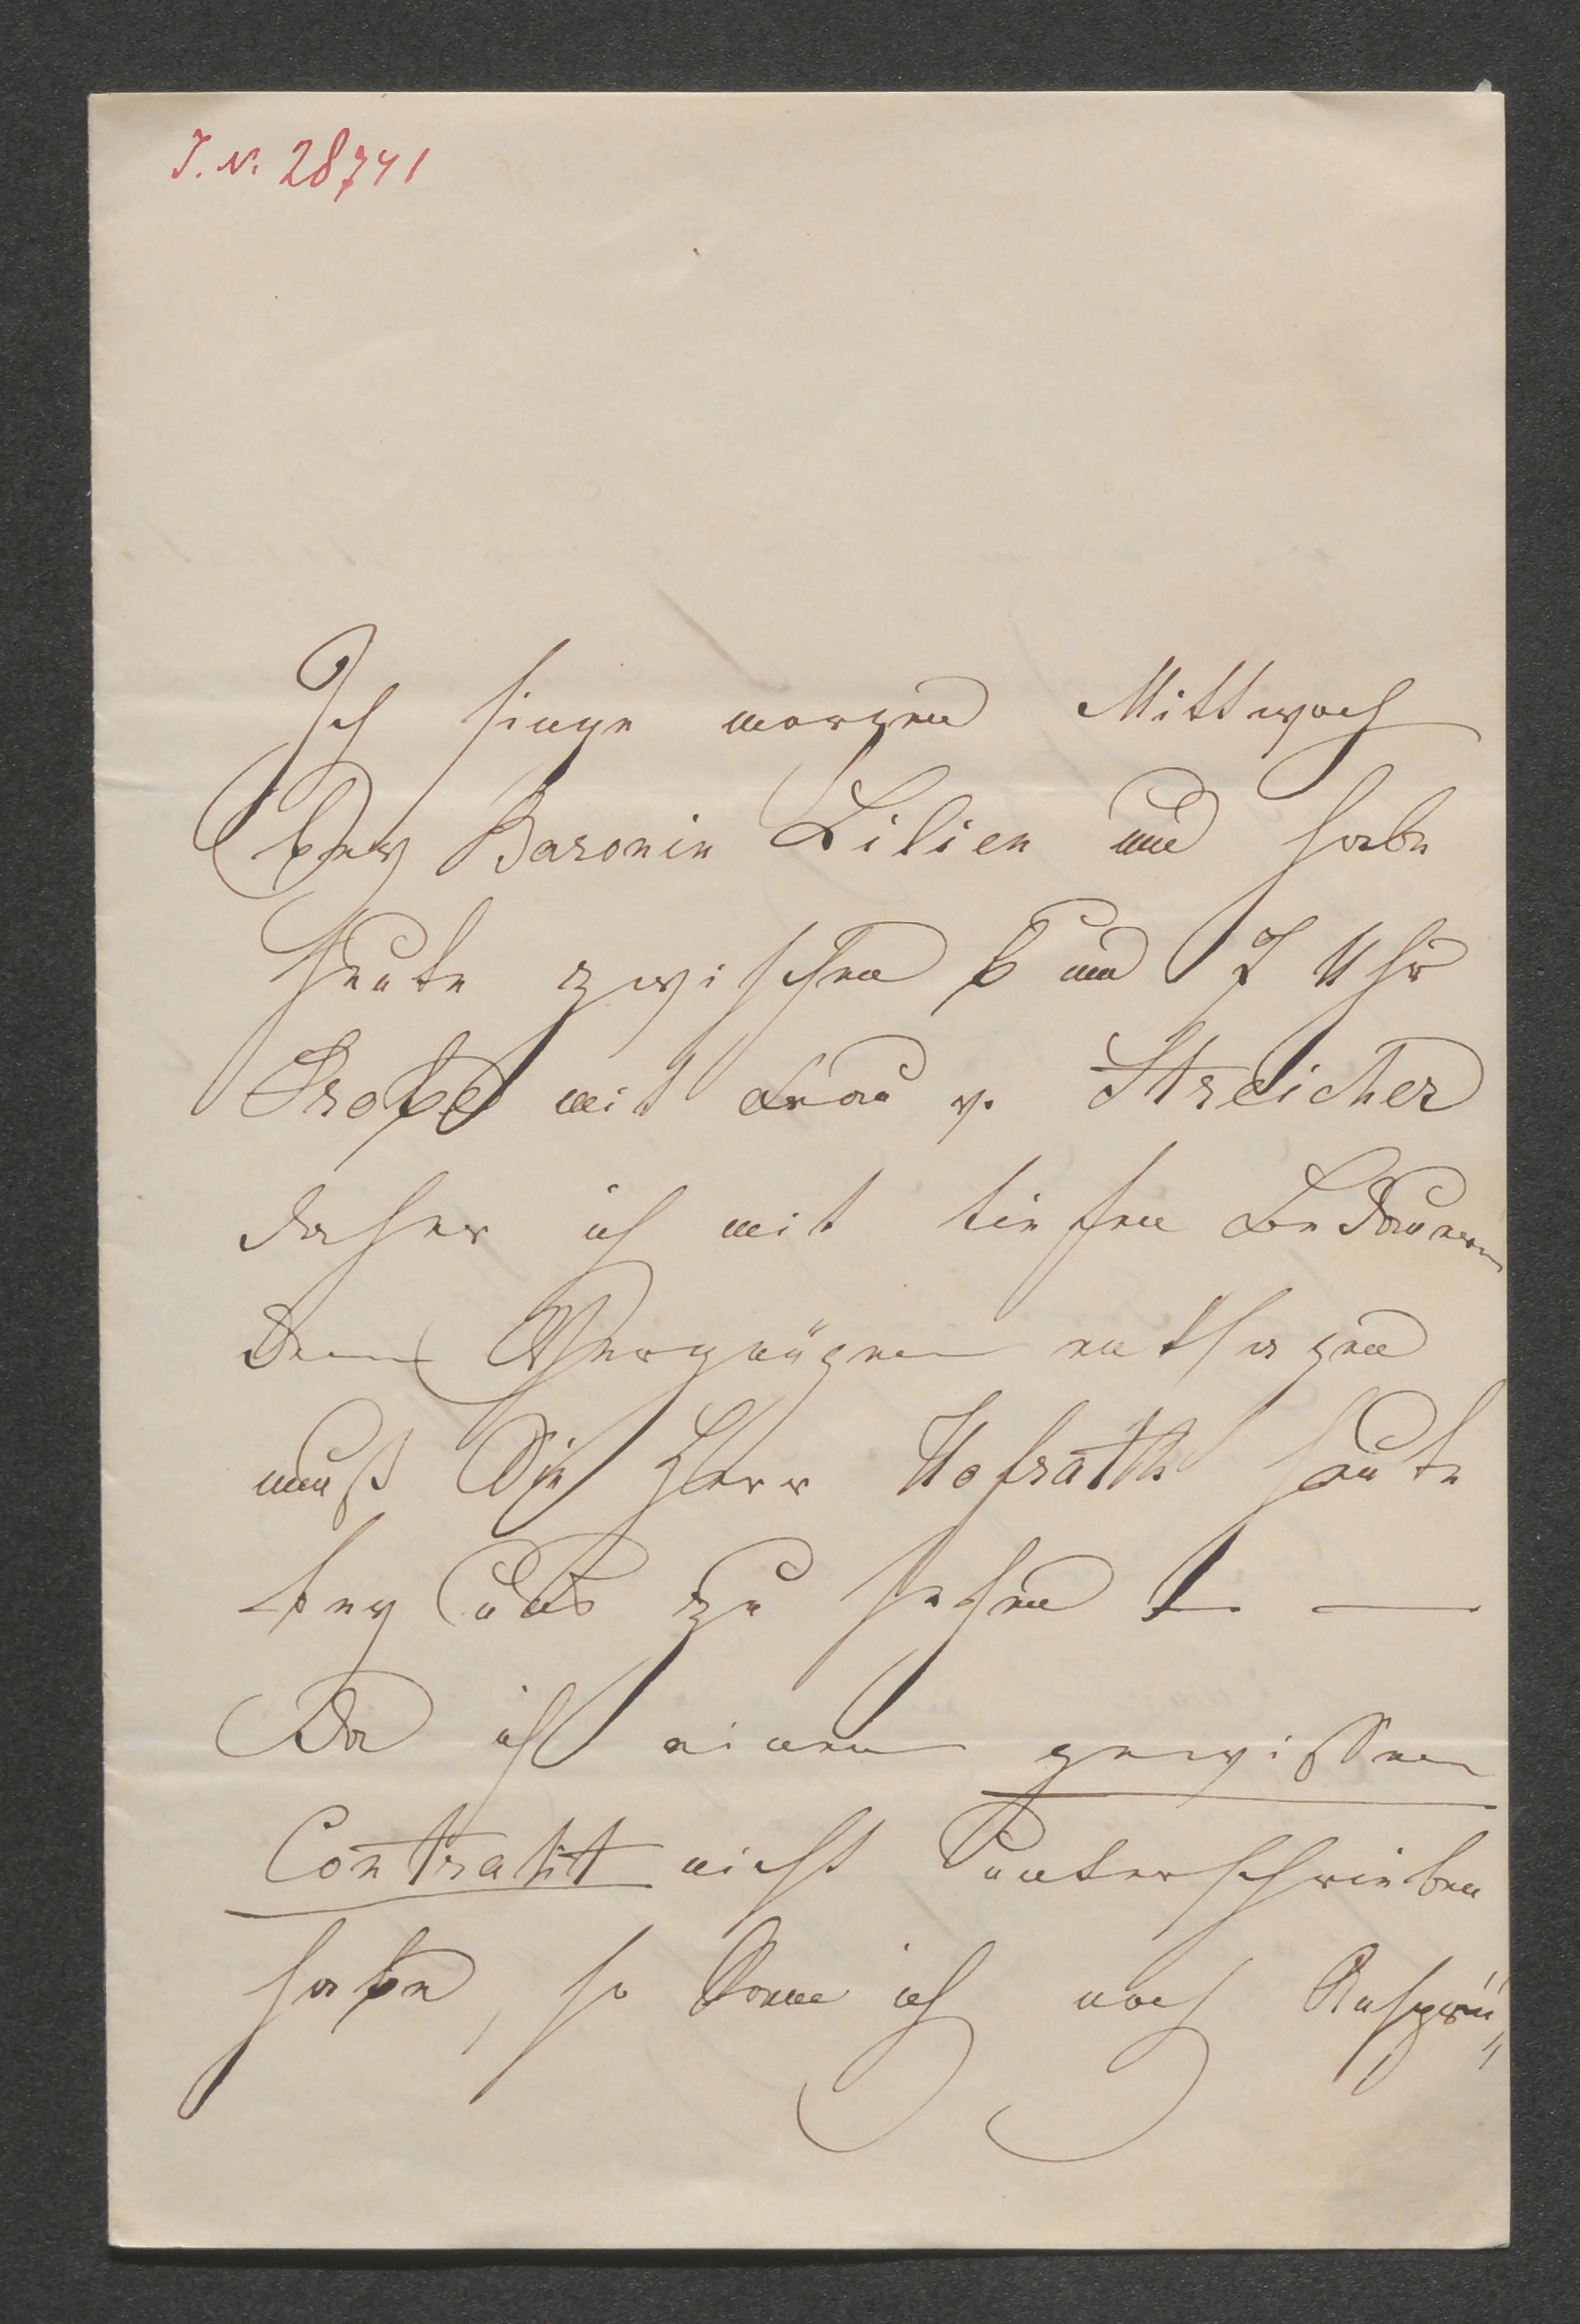 I. N. 28741
Ich singe morgen Mittwoch
bey Baronin Lilien und habe
heute zwischen 6 und 7 Uhr
Probe mit Frau v. Streicher
daher ich mit tiefen Bedauern
dem Vergnügen entsagen
muß Sie Herr Hofrath heute
bey uns zu sehen! —
Da ich einen gewissen
Contrakt nicht unterschrieben
habe, so kann ich noch Ansprü„